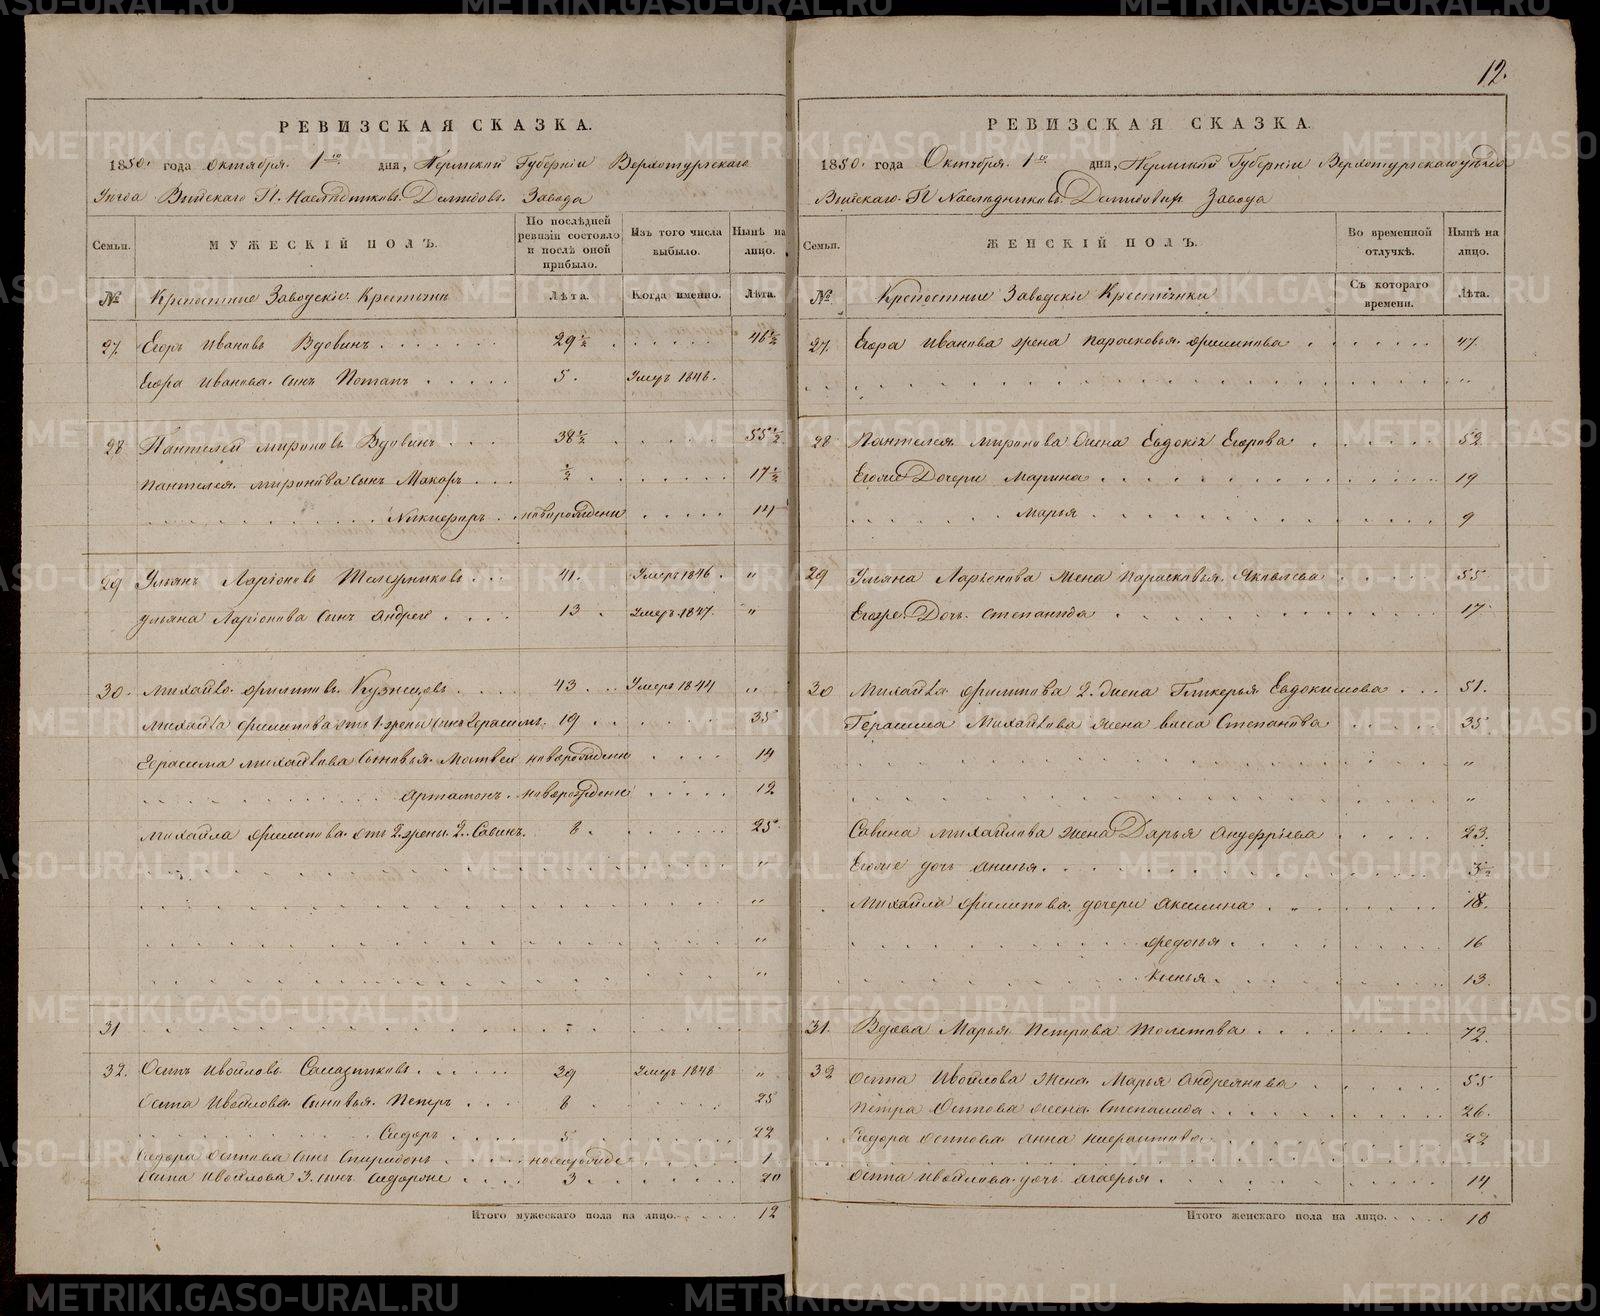 12.
РЕВИЗСКАЯ СКАЗКА.
1850. года Октября. 1го дня, Пермской Губерніи Верхотурскаго
Уезда Выйскаго Гг. Наследниковъ Демидовъ Завода
Семьи. МУЖЕСКІЙ ПОЛЪ. По послѣдней ревизіи состояло и послѣ оной прибыло. Изъ того числа выбыло. Нынѣ на лицо.
№ Крепостные Заводскіе Крестьяне Лѣта. Когда именно. Лѣта.
27. Егоръ Ивановъ Вдовинъ 29½ 46½
Егора Иванова Сынъ Потапъ 5. Умеръ 1848.
28 Пантелей Мироновъ Вдовинъ 38½ 55½
Пантелея Миронова Сынъ Макаръ ½ 17½
Никифоръ новорожденн 14
29 Ульянъ Ларіоновъ 41. Умеръ 1846. "
Ульяна Ларіонова Сынъ Андрей 13 Умеръ 1847. "
30. Михайло Филиповъ Кузнецовъ 43 Умеръ 1844 "
Михайла Филипова отъ 1 жены сынъ Герасимъ 19 35
Герасима Михайлова Сыновья Матвей новорожденн 14
Артамонъ новорожденн 12
Михайла Филипова отъ 2 жены 2. Савинъ 8 25
"
"
"
"
31
32. Осипъ Ивойловъ 39 Умеръ 1848 "
Осипа Ивойлова Сыновья Петръ 8 25
Сидоръ 5 22
Сидора Осипова Сынъ Спиридонъ 1
Осипа Ивойлова 3. сынъ 3 20
Итого мужескаго пола на лицо. 12
РЕВИЗСКАЯ СКАЗКА.
1850. года Октября 1го дня, Пермской Губерніи Верхотурскаго уезда
Выйскаго Гг Наследниковъ Демидовыхъ Завода
Семьи. ЖЕНСКІЙ ПОЛЪ. Во временной отлучкѣ. Нынѣ на лицо.
№ Крепостные Заводскіе Крестьянки Съ котораго времени. Лѣта.
27. Егора Иванова жена Парасковья Филипова 47.
"
28 Пантелея Миронова Жена Евдокія Егорова 52
Егоже Дочери Марина 19
Марья 9
29 Ульяна Ларіонова Жена Парасковья Яковлева 55
Егоже Дочь Степанида 17
30 Михайла Филипова 2. Жена Гликерья Евдокимова 51.
Герасима Михайлова Жена Степанова 35
"
"
Савина Михайлова жена Дарья Ануфріева 23.
Егоже дочь Анисья 3½
Михайла Филипова дочери Акилина 18.
Федосья 16
13.
31. Вдова Марья Петрова 72.
32 Осипа Ивойлова Жена Марья Андреянова 55
Петра Осипова жена Степанида 26.
Сидора Осипова Анна 22
Осипа Ивойлова дочь Агафья 14
Итого женскаго пола на лицо. 16
METRIKI.GASO-URAL.RU